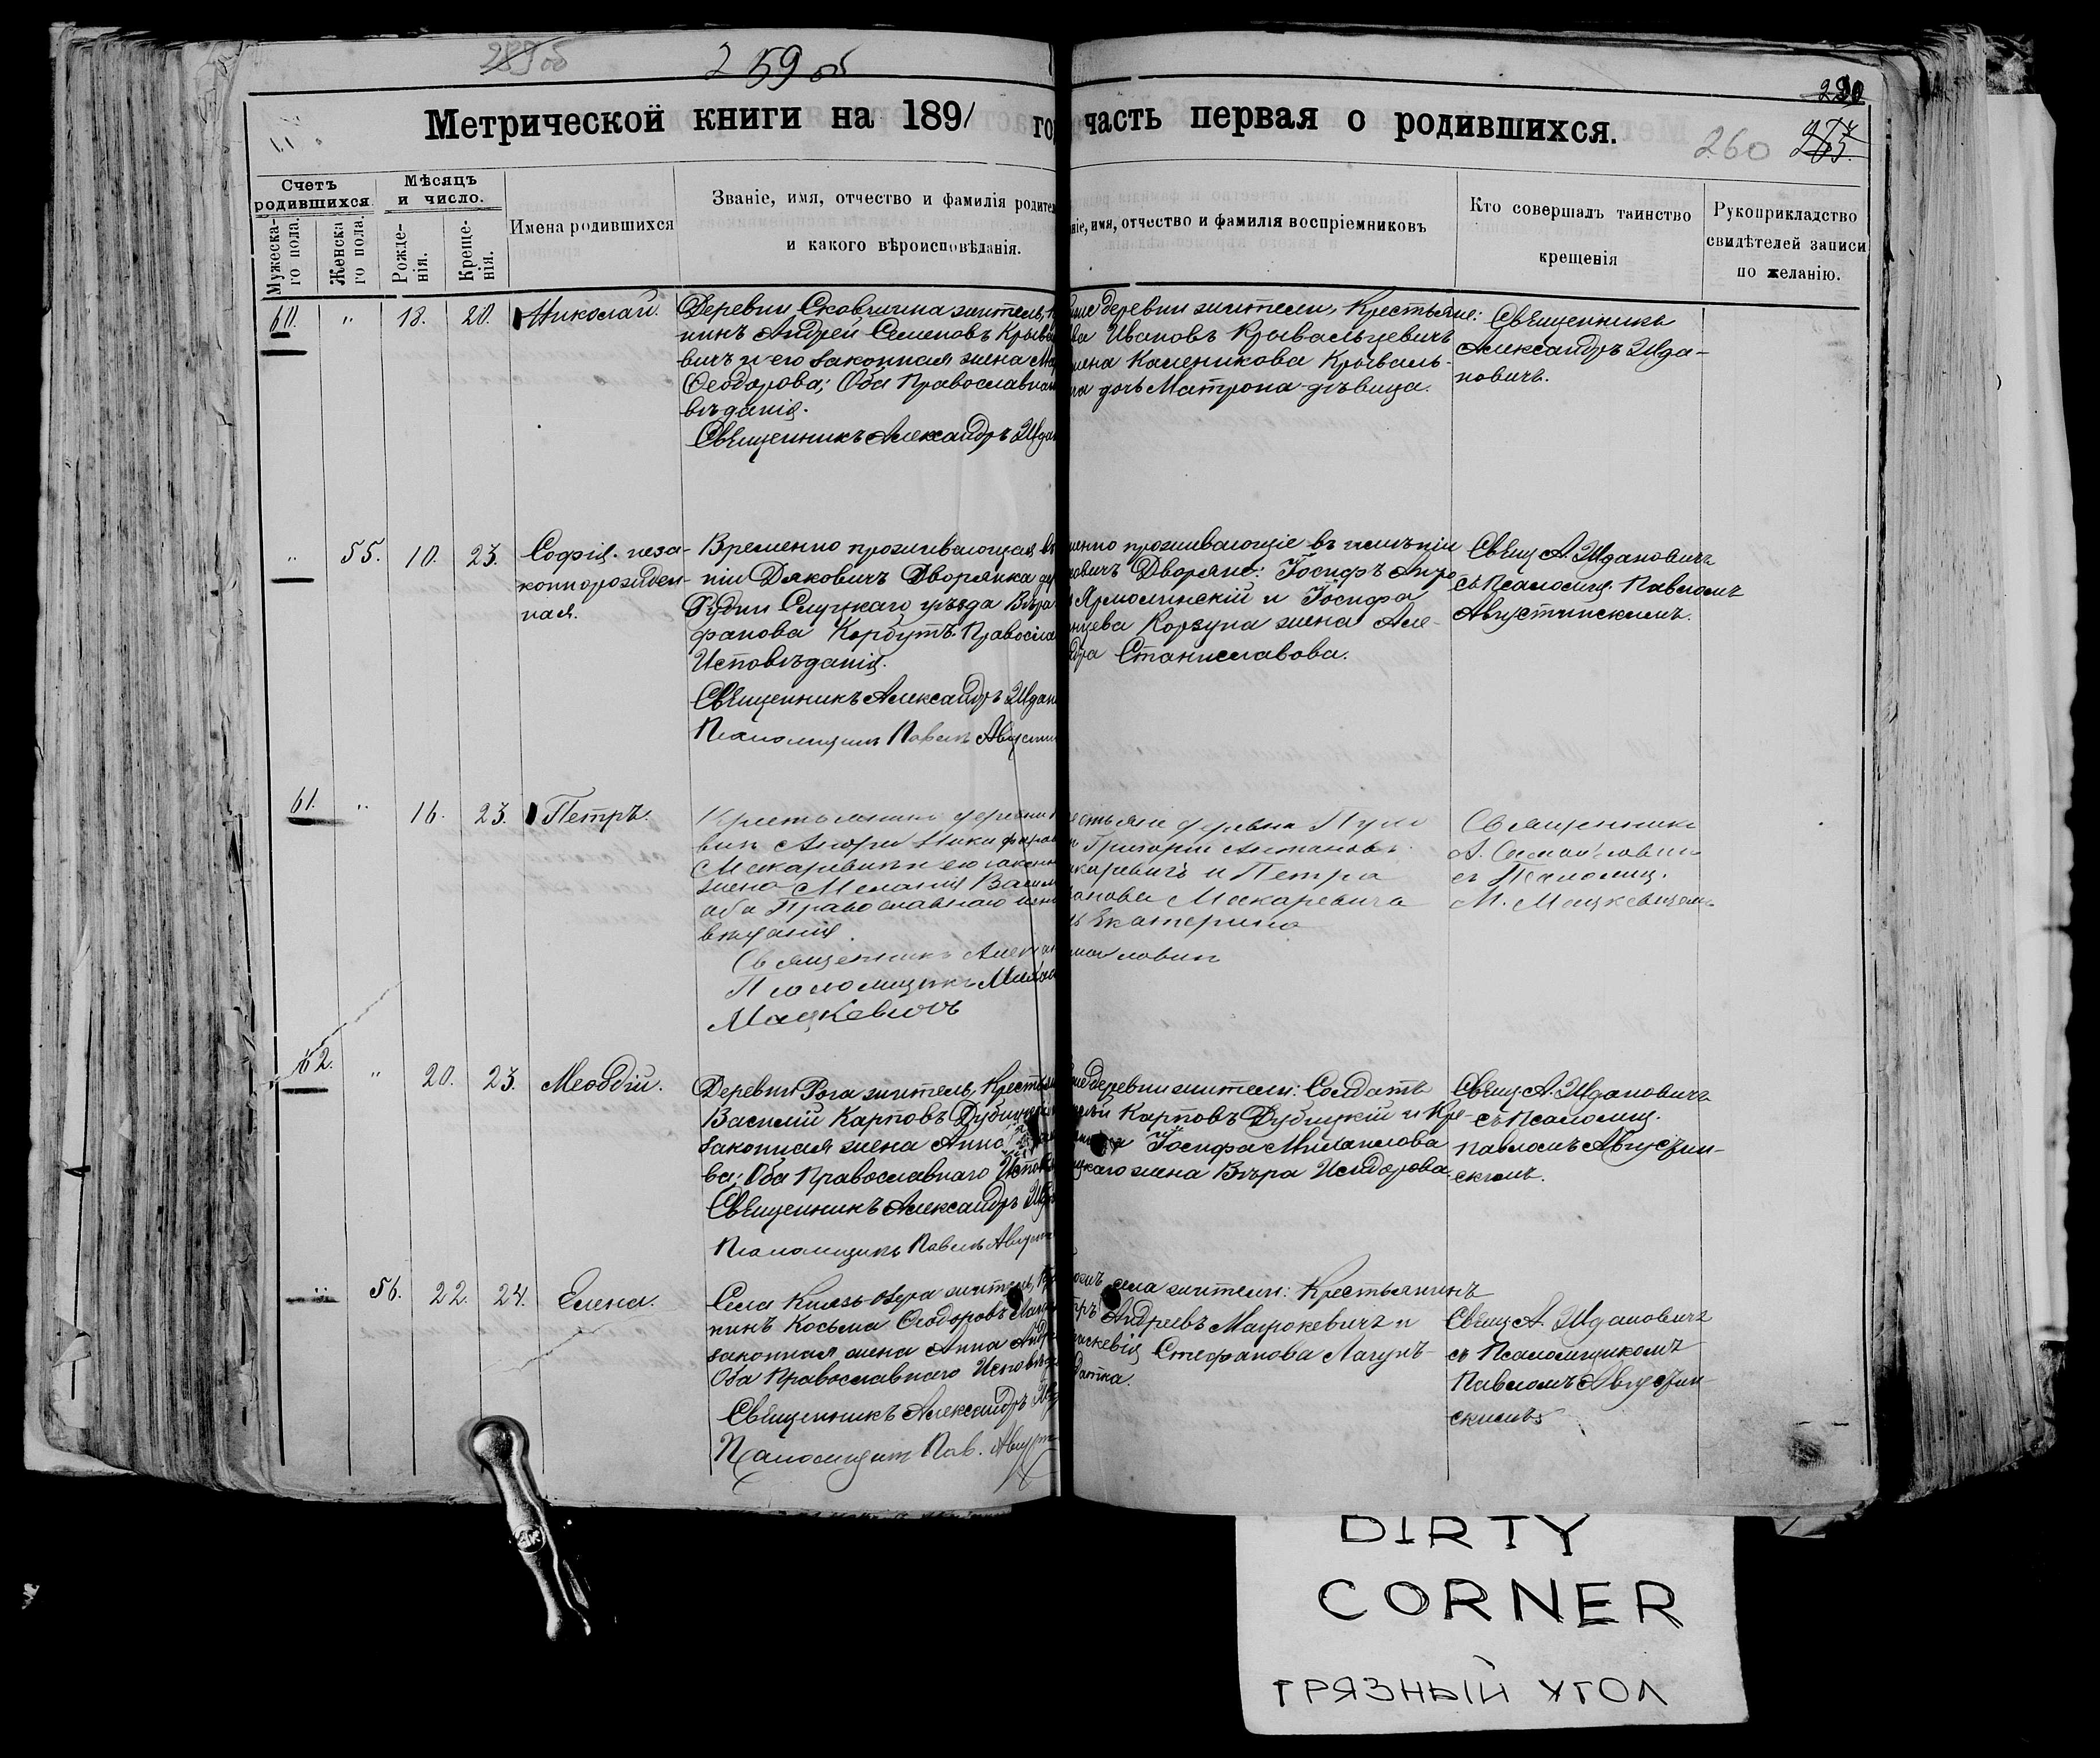 259 об
Метрической книги на 1891 го
часть первая о родившихся.
260
Счетъ родившихся.
Мужеска-го пола.
Женска го пола.
Мѣсяцъ и число.
Рожде-нія.
Креще-нія.
Имена родившихся
Званіе, имя, отчество и фамилія родите
и какого вѣроисповѣданія.
ніе, имя, отчество и фамилія воспріемниковъ
Кто совершалъ таинство
крещенія
Рукоприкладство
свидѣтелей записи
по желанію.
60. " 18. 20. Николай.
Деревни Сковшина житель,
нинъ Андрей Семеновъ Крыва
вичъ и его законная жена Ма
Ѳеодорова; Оба Православна
вѣданія.
Священникъ Александръ Жда
деревни жители, Крестьяне:
ва Ивановъ Крывальцевичъ
Каленикова Крываль-
на дочь Матрона дѣвица.
Священникъ
Александръ Жда-
новичъ.
" 55. 10. 23. Софія. неза-
коннорожден-
ная.
Временно проживающая въ
ніи Дяковичъ Дворянка
Рудни Слуцкаго уѣзда Вѣра
фанова Корбутъ. Правосла
Исповѣданія.
Священникъ Александръ Ждан
Псаломщикъ Павелъ Августи
менно проживающіе въ имѣніи
ковичъ Дворяне: Іосифъ
Ярмолинскій и Іосифа
Корзуна жена Але-
дра Станиславова.
Свящ. А. Ждановичъ
съ Псаломщ. Павломъ
Августинскимъ.
61. " 16. 23. Петръ.
Крестьянинъ деревни
Андрей Никифоров
Макаревичъ и его законн
жена Меланія Васил
оба Православнаго испо
вѣданія.
Священникъ Алекса
Псаломщикъ Михаи
Мацкевичъ
стьяне деревни
Григорій Антоновъ
каревичъ и Петра
Макаревича
Екатерина
Священникъ
А.
съ Псаломщ.
М. Мацкевичемъ
62. " 20. 23. Меѳодій.
Деревни Рога житель, Крестья
Василій Карповъ Дубицкій
законная жена Анна
ва; Оба Православнаго Испов
Священникъ Александръ Жда
Псаломщикъ Павелъ Августи
деревни жители: Солдатъ
Карповъ Дубицкій и Кре-
Іосифа Михаилова
цкаго жена Вѣра Исидорова.
Свящ. А. Ждановичъ
съ Псаломщ.
Павломъ Августин-
скимъ.
" 56. 22. 24. Елена.
Села Князь-Озера житель, Кр
нинъ Косьма Ѳеодоровъ
законная жена Анна Андре
Оба Православнаго Исповѣд
Священникъ Александръ Жд
Псаломщикъ Пав. Август
села жители: Крестьянинъ
Андреевъ Мацокевичъ и
раскевія Стефанова Лагунъ-
датка.
Свящ. А. Ждановичъ
съ Псаломщикомъ
Павломъ Августин-
скимъ
DIRTY
CORNER
ГРЯЗНЫЙ УГОЛ